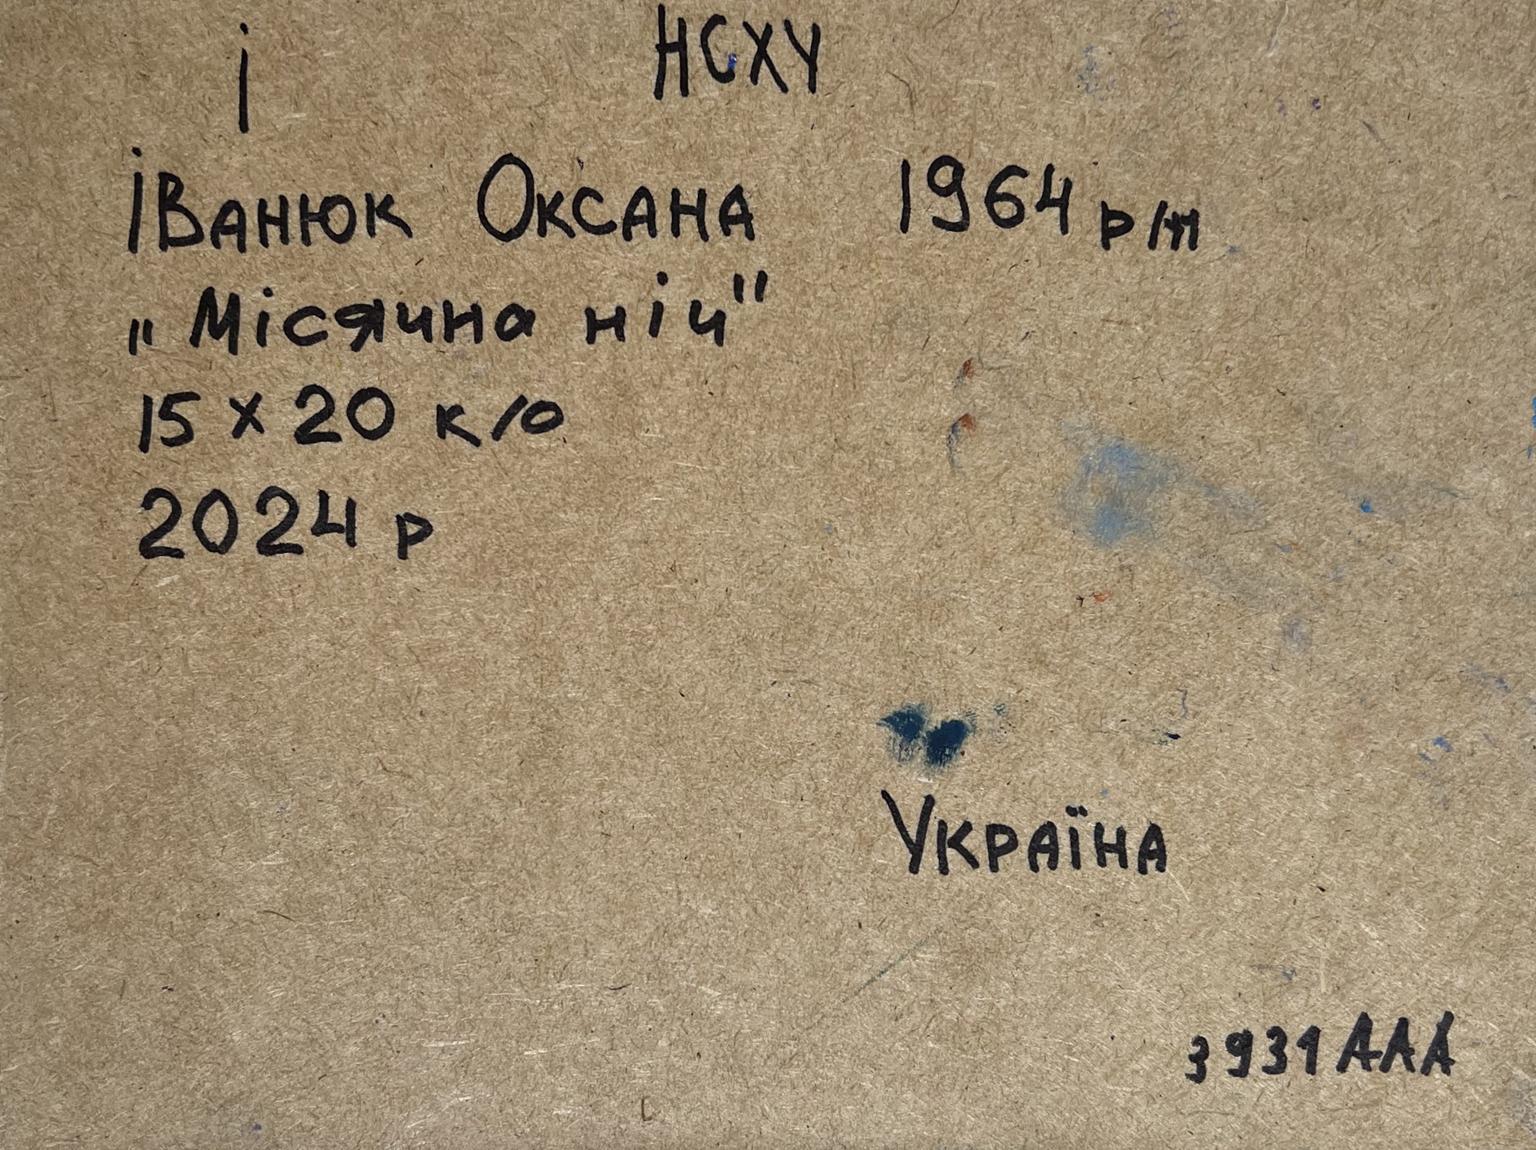 І НСХУ
Іванюк Оксана 1964 р/н
„Місячна ніч"
15 х 20 к/о
2024 р
Україна
3931ААА